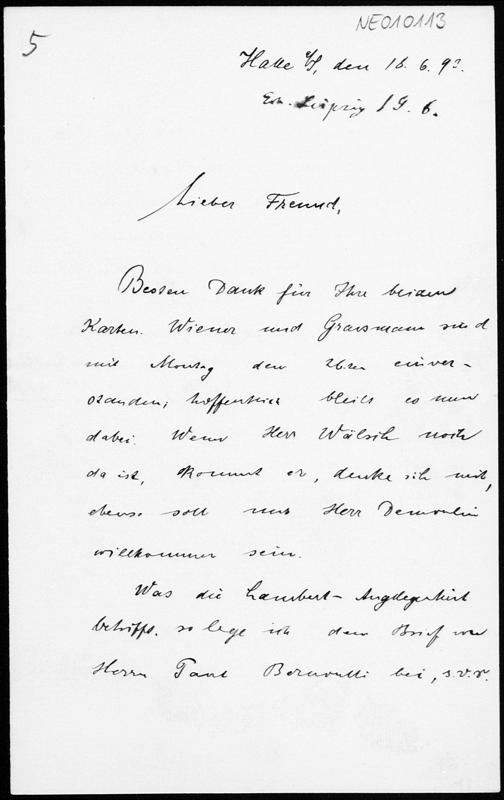 NE010113
5
Halle a/S, den 18. 6. 93.
Erh. Leipzig 19. 6.
Lieber Freund,
Besten Dank für Ihre beiden
Karten. Wiener und Grassmann sind
mit Montag den 26ten einver-
standen; hoffentlich bleibt es nun
dabei. Wenn Herr Wälsch noch
da ist, kommt er, denke ich mit,
ebenso soll uns Herr Demoulin
willkommen sein.
Was die Lambert-Angelegenheit
betrifft, so lege ich den Brief von
Herrn Paul Bernoulli bei, s.v.r.